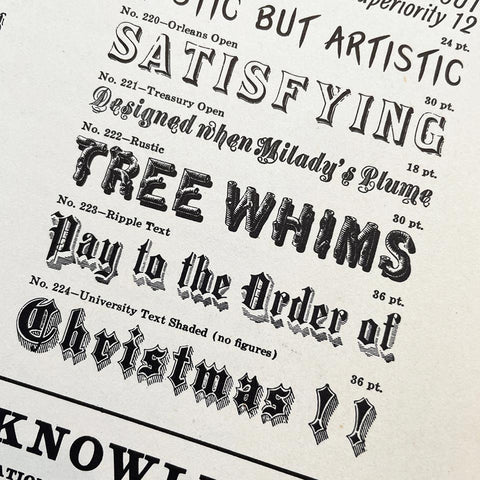 superiority 12
BUT ARTISTIC
24 pt.
No. 220—Orleans Open
SATISFYING
30 pt.
No. 221—Treasury Open
Designed when Milady's Plume
18 pt.
No. 222—Rustic
TREE WHIMS
30 pt.
No. 223—Ripple Text
Pay to the Order of
36 pt.
No. 224—University Text Shaded (no figures)
Christmas !!
36 pt.